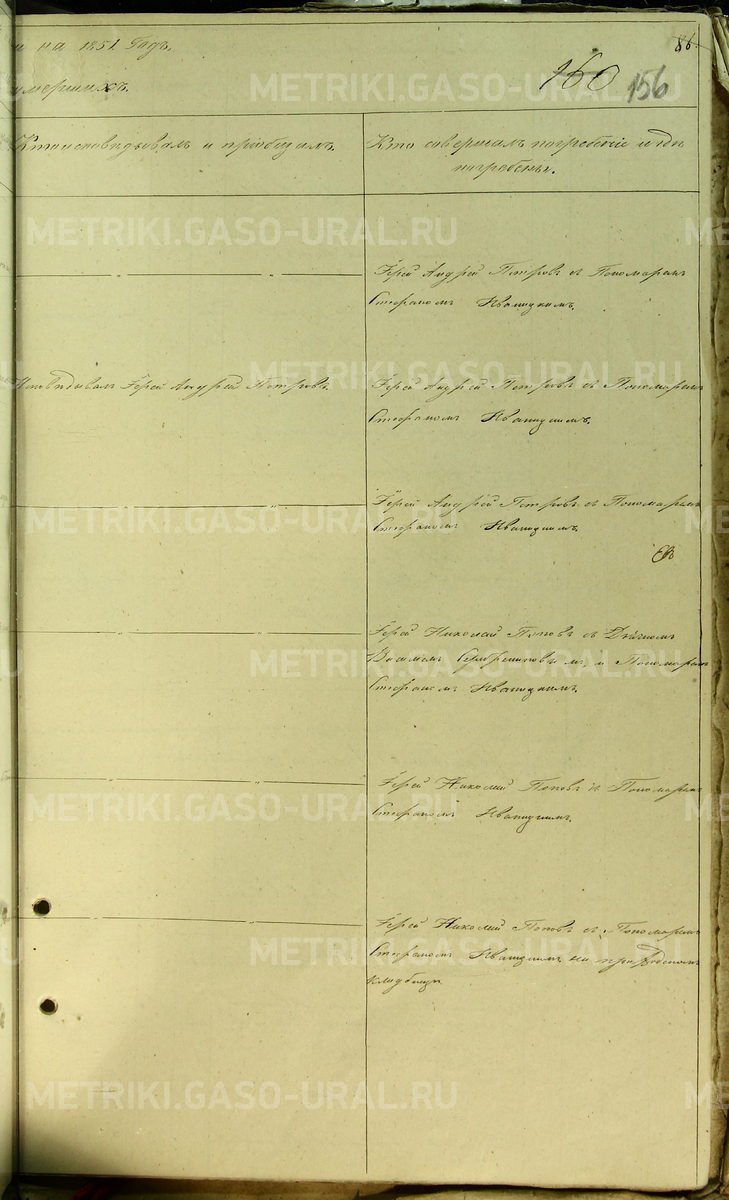 и на 1851 Годъ.
86
160 156
умершихъ.
Кто исповѣдывалъ и пріобщалъ.
Кто совершалъ погребеніе и гдѣ
погребены.
Іерей Андрей Петровъ съ Пономаремъ
Стефаномъ
Исповѣдывалъ Іерей Андрей Петровъ.
Іерей Андрей Петровъ съ Пономаремъ
Стефаномъ
Іерей Андрей Петровъ съ Пономаремъ
Стефаномъ
Іерей Николай Поповъ съ
и Пономаремъ
Стефаномъ
Іерей Николай Поповъ съ Пономаремъ
Стефаномъ
Іерей Николай Поповъ съ Пономаремъ
Стефаномъ на приходскомъ
кладбищѣ
METRIKI.GASO-URAL.RU